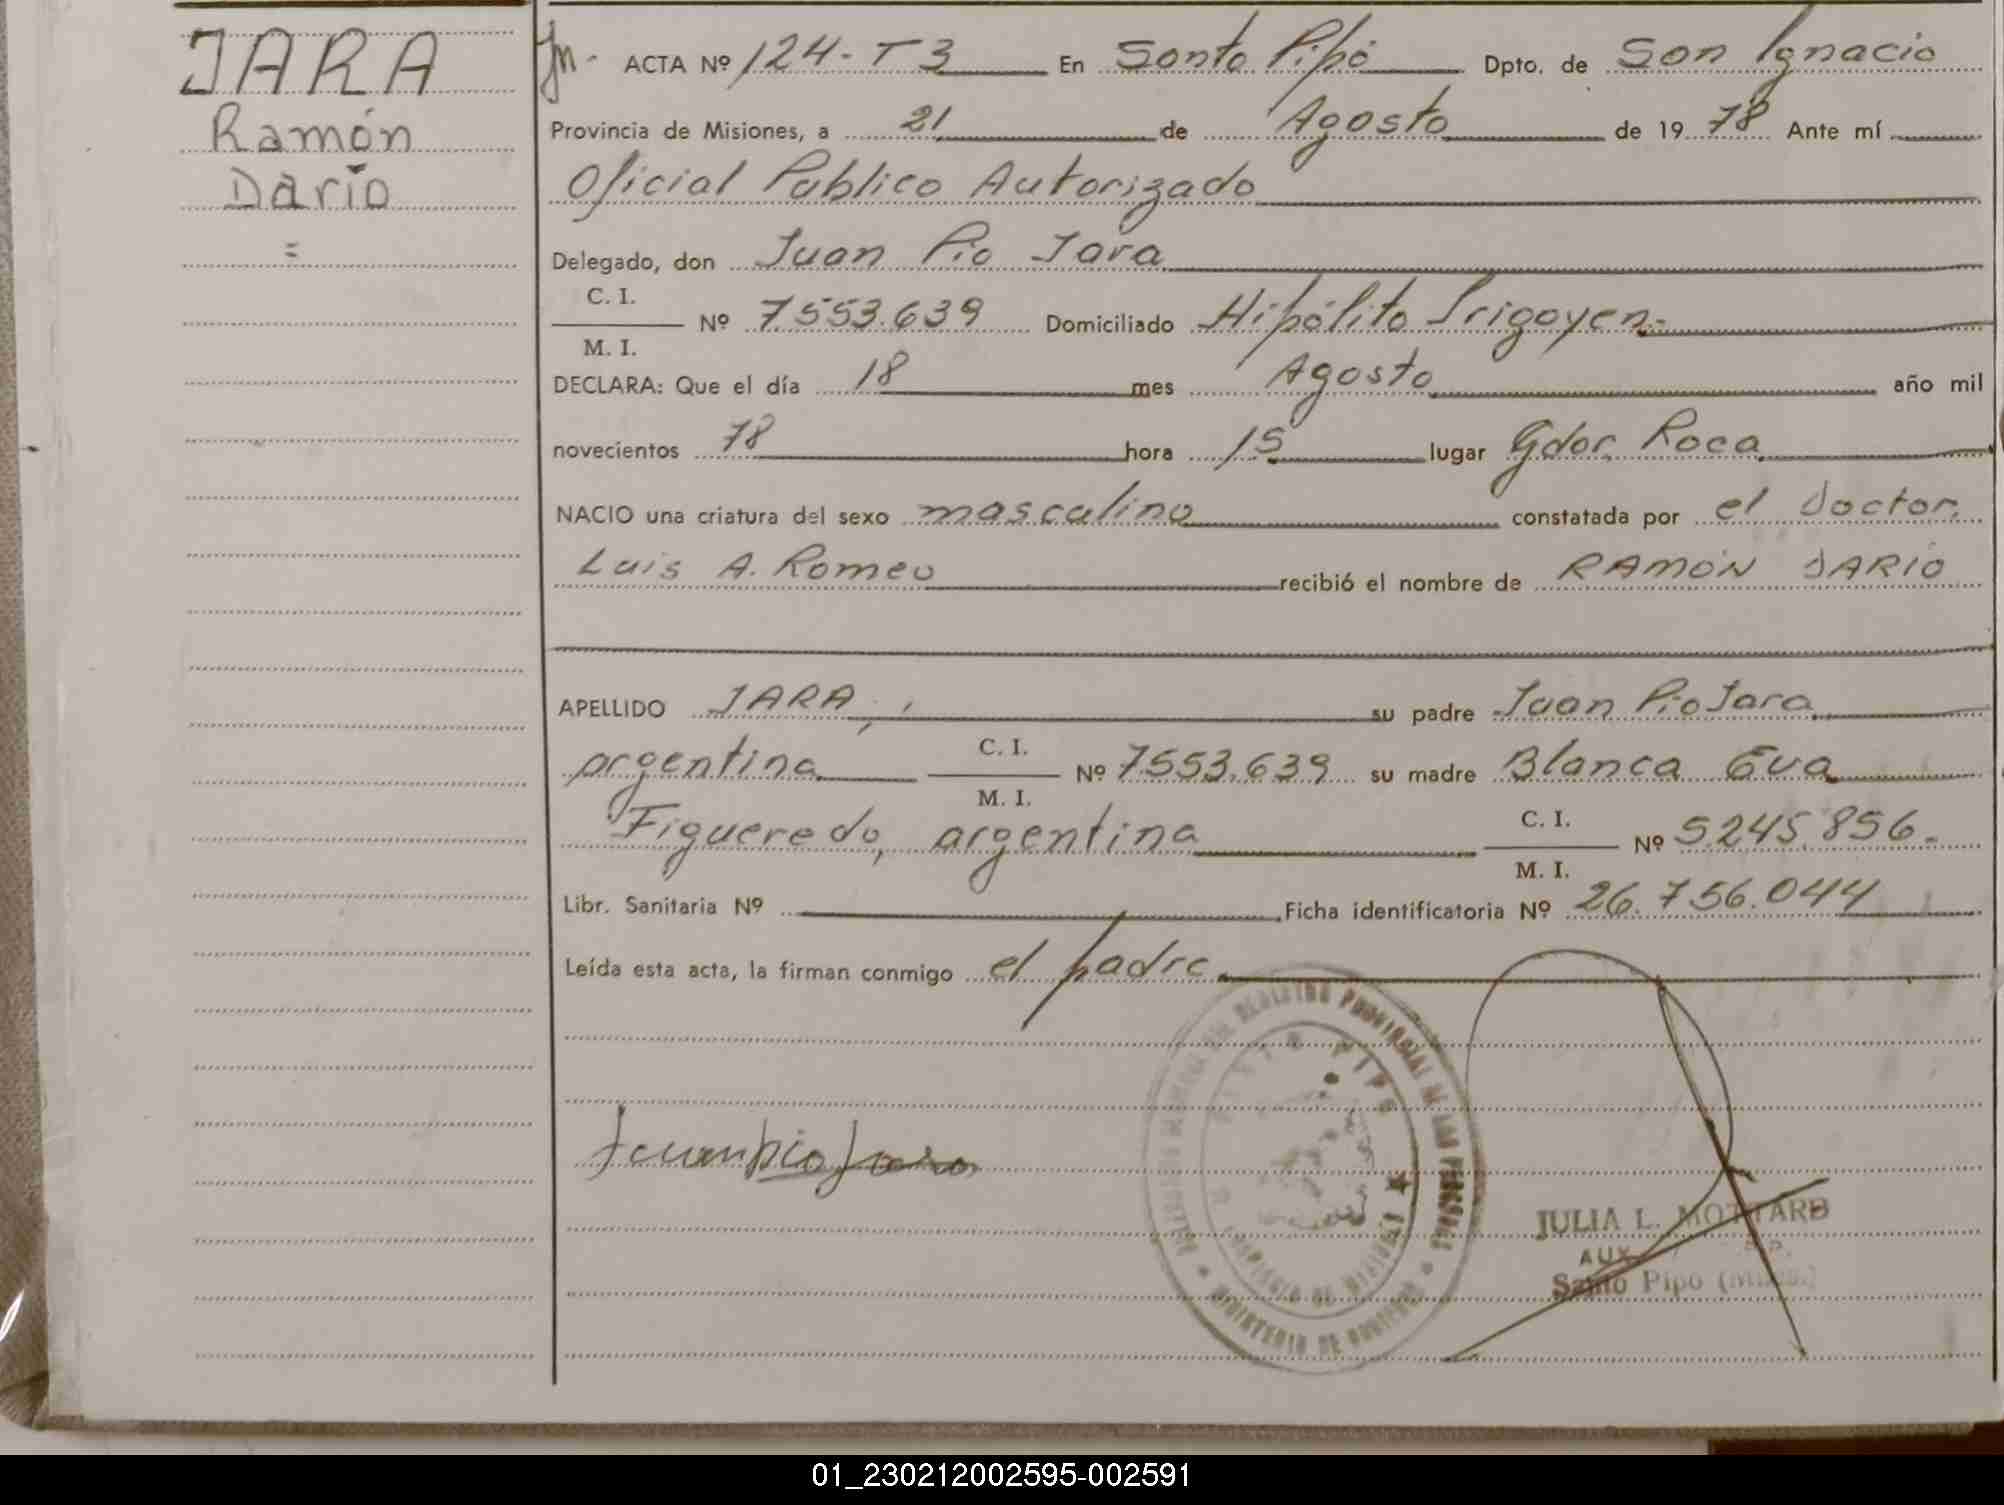 JARA
Ramón
Darío
=
Jn. ACTA Nº 124-T3 En Santo Pipó Dpto. de San Ignacio
Provincia de Misiones, a 21 de Agosto de 1978 Ante mí
Oficial Publico Autorizado
Delegado, don Juan Pio Jara
C. I.
M. I.
Nº 7553.639 Domiciliado Hipólito Irigoyen.-
DECLARA: Que el día 18 mes Agosto año mil
novecientos 78 hora 15 lugar Gdor. Roca
NACIO una criatura del sexo masculino constatada por el doctor.
Luis A. Romeo recibió el nombre de RAMÓN DARIO
APELLIDO JARA, su padre Juan Pio Jara
argentina C. I. M. I. Nº 7553.639 su madre Blanca Eva
Figueredo, argentina C. I. M. I. Nº 5245.856.-
Libr. Sanitaria Nº Ficha identificatoria Nº 26.756.044
Leída esta acta, la firman conmigo el padre
Juan pio Jara
REGISTRO PROVINCIAL DE LAS PERSONAS
PIPO
MINISTERIO DE GOBIERNO
JULIA L. MOTTARD
AUX
Santo Pipo (Mnes.)
01_230212002595-002591